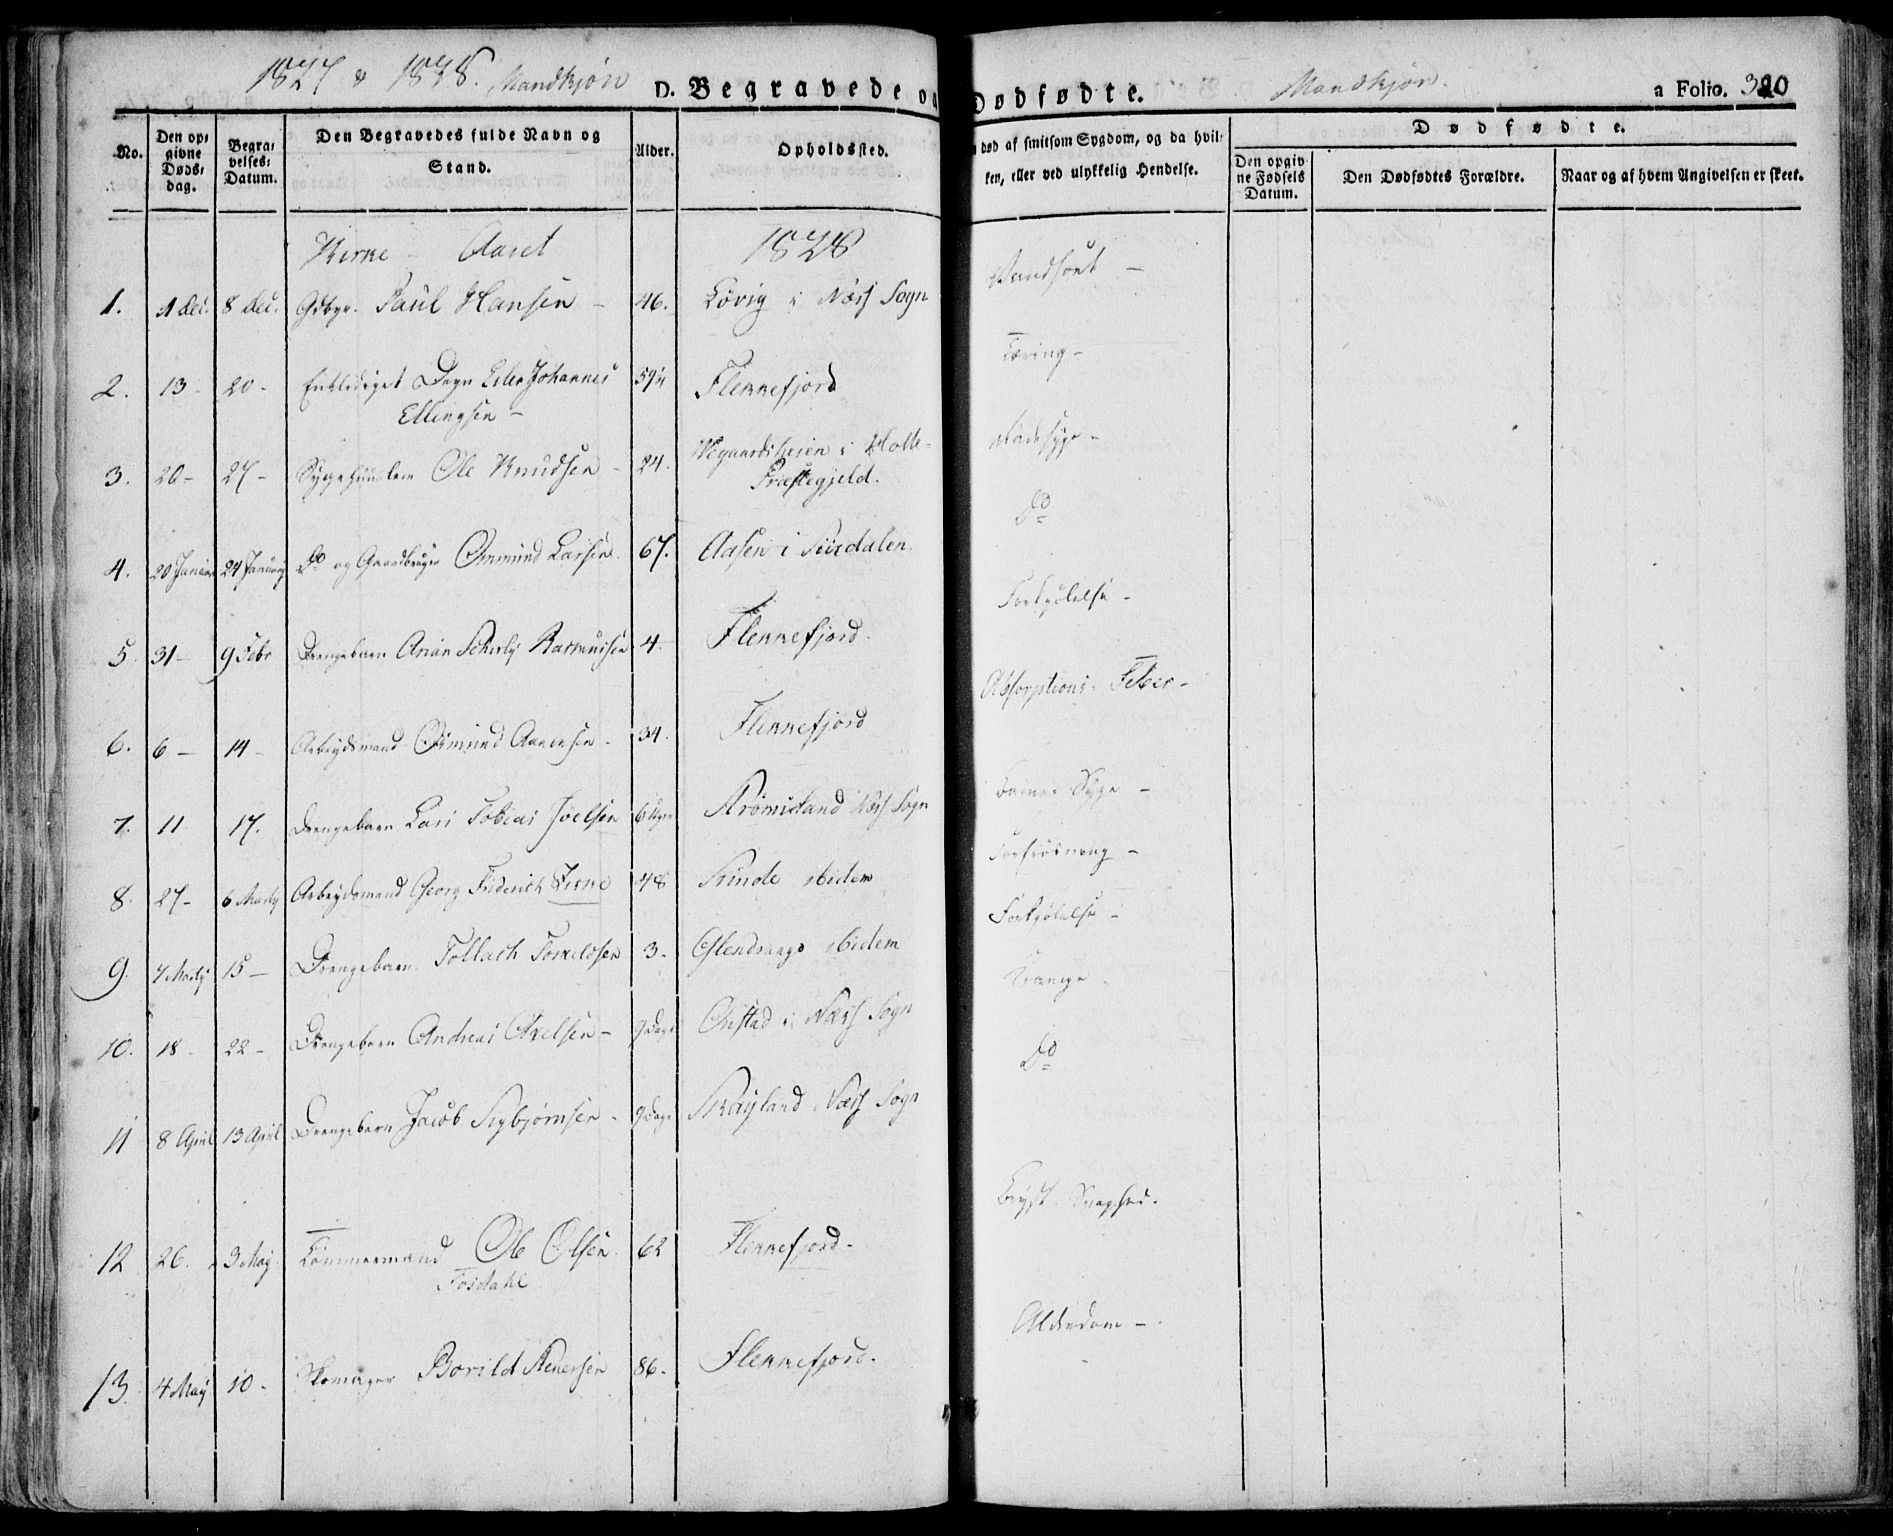 1827 & 1828. Mandkjøn D. Begravede og Dødfødte. Mandkjøn. a Folio. 320
No. Den opgivne Dødsdag. Begravelses Datum. Den Begravedes fulde Navn og Stand. Alder. Opholdssted. død af smitsom Sygdom, og da hvilken, eller ved ulykkelig Hendelse. Dødfødte. Den opgivne Fødsels Datum. Den Dødfødtes Forældre. Naar og af hvem Angivelsen er skeet.
Kirke Aaret 1828
1. 1 Dec. 8 Dec. Gdbgr. Paul Hansen - 46. Løvig i Næss Sogn Vandsoet -
2. 13 - 20 - Entlediget Degn Eiler Johannes Ellingsen - 59¼ Flekkefjord Tæring -
3. 20 - 27 - Sygehuuslem Ole Knudsen - 24. Wegaardsheien i Holte-Præstegjeld. Radesyge -
4. 20 Januar 24 Januar Do og Gaardbruger Ommund Larsen. 67. Aasen i Siirdalen. Do
5. 31 - 9 Febr Drengebarn Arian Rasmussen 4. Flekkefjord. Forkjølelse -
6. 6 - 14 - Arbeydsmand Osmund Aanensen - 34. Flekkefjord Absorptions-Feber -
7. 11 17. Drengebarn Lars Tobias Joelsen 6 Uger Strømsland Næss Sogn Barne Syge -
8. 27 - 6 Marty Arbeydsmand Georg Friderich 48 Stinde ibidem Forfrysning -
9. 7 Marty 15 - Drengebarn Tollach Torkeldsen 3. ibidem Forkjølelse -
10. 18 - 22 - Drengebarn Andreas Axelsen - 9 Dage Onstad i Næss Sogn Krampe -
11 8 April 13 April Drengebarn Jacob Sigbjørnsen - 9 Dage Skayland Næss Sogn Do
12 26. 3 May Tømmermand Ole Olsen Fosdahl 62 Flekkefjord - Bryst Svaghed.
13. 4 May 10 - Skomager Borild Stenersen 86. Flekkefjord. Alderdom -